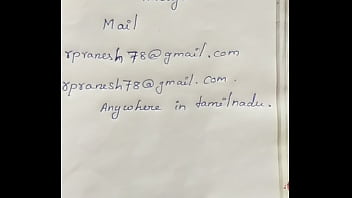 Mail
rpranesh78@gmail.com
rpranesh78@gmail.com.
Anywhere in tamilnadu.